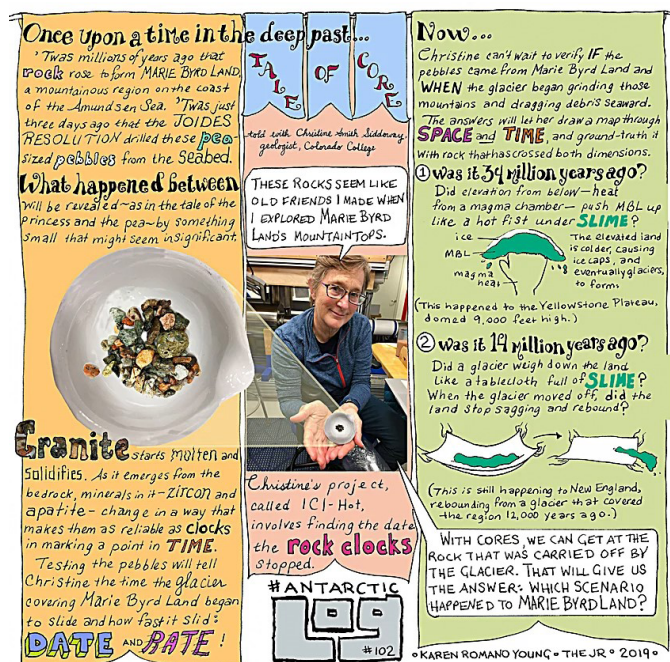 Once upon a time in the deep past...
'Twas millions of years ago that
rock rose to form MARIE BYRD LAND,
a mountainous region on the coast
of the Amundsen Sea. 'Twas just
three days ago that the JOIDES
RESOLUTION drilled these pea
sized pebbles from the seabed.
What happened between
will be revealed-as in the tale of the
Princess and the pea-by something
small that might seem insignificant.
Granite starts molten and
solidifies. As it emerges from the
bedrock, minerals in it-zircon and
apatite- change in a way that
makes them as reliable as clocks
in marking a point in TIME.
Testing the pebbles will tell
Christine the time the glacier
covering Marie Byrd Land began
to slide and how fast it slid:
DATE AND RATE!
TALE OF CORE
told with Christine Smith Siddoway
geologist, Colorado College
THESE ROCKS SEEM LIKE
OLD FRIENDS I MADE WHEN
I EXPLORED MARIE BYRD
LAND'S MOUNTAINTOPS.
Christine's project,
called ICI-Hot,
involves finding the date
the rock clocks
stopped.
#ANTARCTIC
LOG
#102
Now...
Christine can't wait to verify IF the
pebbles came from Marie Byrd Land and
WHEN the glacier began grinding those
mountains and dragging debris seaward.
The answers will let her draw a map through
SPACE and TIME, and ground-truth it
with rock that has crossed both dimensions.
① was it 34 Million years ago?
Did elevation from below-heat
from a magma chamber- push MBL up
like a hot fist under SLIME?
ice
MBL
magma
heat
The elevated land
is colder, causing
ice caps, and
eventually glaciers,
to form.
(This happened to the Yellowstone Plateau,
domed 9,000 feet high.)
② was it 14 Million years ago?
Did a glacier weigh down the land
like a tablecloth full of SLIME?
When the glacier moved off, did the
land stop sagging and rebound?
(This is still happening to New England,
rebounding from a glacier that covered
the region 12,000 years ago.)
WITH CORES, WE CAN GET AT THE
ROCK THAT WAS CARRIED OFF BY
THE GLACIER. THAT WILL GIVE US
THE ANSWER: WHICH SCENARIO
HAPPENED TO MARIE BYRD LAND?
• KAREN ROMANO YOUNG • THE JR • 2019 •